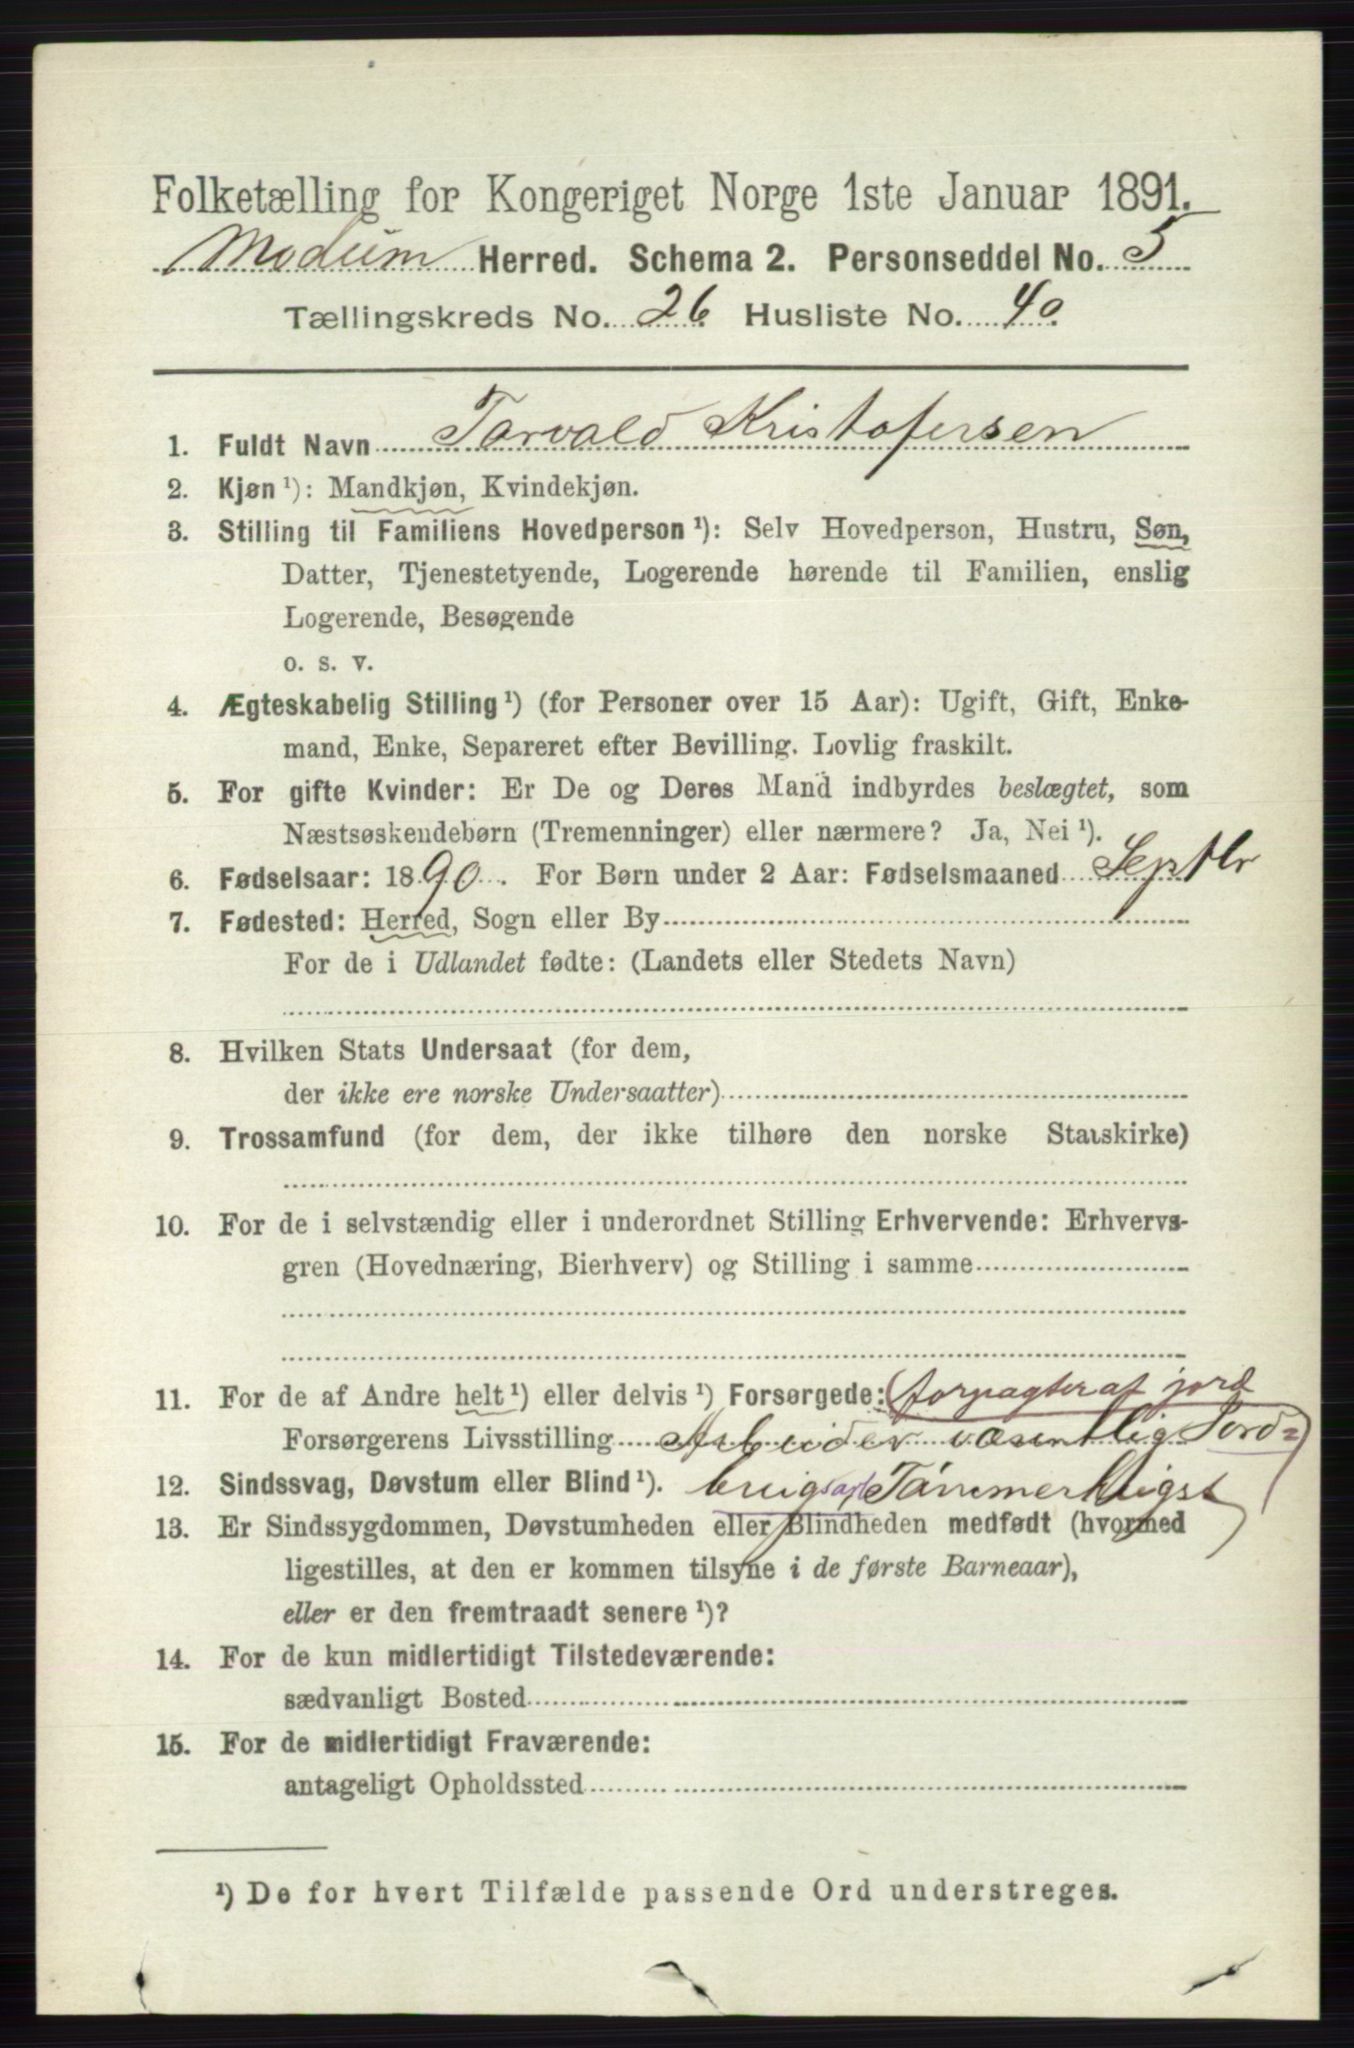 Folketælling for Kongeriget Norge 1ste Januar 1891.
Modum Herred. Schema 2. Personseddel No. 5
Tællingskreds No. 26 Husliste No. 40
1. Fuldt Navn Torvald Kristofersen
2. Kjøn ¹): Mandkjøn, Kvindekjøn.
3. Stilling til Familiens Hovedperson ¹): Selv Hovedperson, Hustru, Søn,
Datter, Tjenestetyende, Logerende hørende til Familien, enslig
Logerende, Besøgende
o. s. v.
4. Ægteskabelig Stilling ¹) (for Personer over 15 Aar): Ugift, Gift, Enke-
mand, Enke, Separeret efter Bevilling. Lovlig fraskilt.
5. For gifte Kvinder: Er De og Deres Mand indbyrdes beslægtet, som
Næstsøskendebørn (Tremenninger) eller nærmere? Ja, Nei ¹).
6. Fødselsaar: 1890. For Børn under 2 Aar: Fødselsmaaned Septbr
7. Fødested: Herred, Sogn eller By
For de i Udlandet fødte: (Landets eller Stedets Navn)
8. Hvilken Stats Undersaat (for dem,
der ikke ere norske Undersaatter)
9. Trossamfund (for dem, der ikke tilhøre den norske Statskirke)
10. For de i selvstændig eller i underordnet Stilling Erhvervende: Erhvervs-
gren (Hovednæring, Bierhverv) og Stilling i samme
11. For de af Andre helt ¹) eller delvis ¹) Forsørgede: (forpagter af jord
Forsørgerens Livsstilling Arbeider væsentlig Jord=
12. Sindssvag, Døvstum eller Blind ¹). brugsarb Tømmerhugst
13. Er Sindssygdommen, Døvstumheden eller Blindheden medfødt (hvormed
ligestilles, at den er kommen tilsyne i de første Barneaar),
eller er den fremtraadt senere ¹)?
14. For de kun midlertidigt Tilstedeværende:
sædvanligt Bosted
15. For de midlertidigt Fraværende:
antageligt Opholdssted
¹) De for hvert Tilfælde passende Ord understreges.